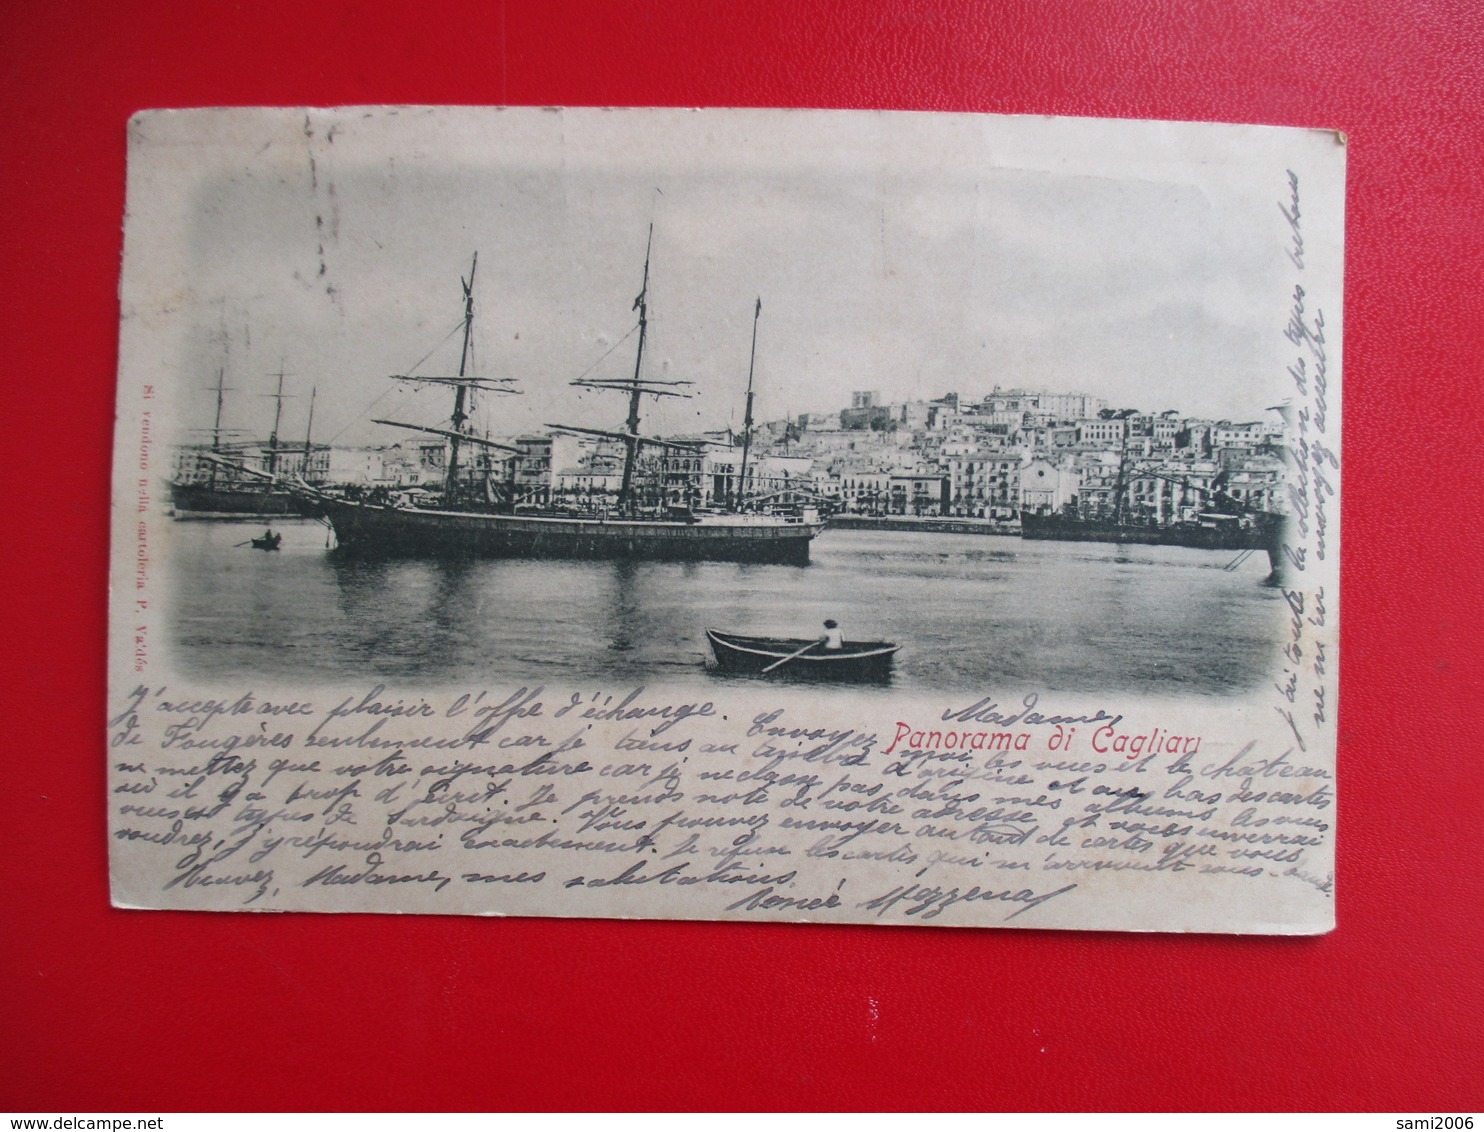 Si vendono nella cartoleria P. Valdés
Panorama di Cagliari
Madame,
J'accepte avec plaisir l'offre d'échange. Envoyez moi les vues et le château
de Fougères seulement car je tiens au timbre d'origine et au bas des cartes
ne mettez que votre signature car je ne classe pas dans mes albums les vues
où il y a trop d'écrit. Je prends note de votre adresse et vous enverrai
vues et types de Sardaigne. Vous pouvez envoyer autant de cartes que vous
voudrez, j'y répondrai exactement. Je refuse les cartes qui m'arrivent sous-bande.
Recevez, Madame, mes salutations
J'ai toute la collection des types bretons
ne m'en envoyez aucun
sami2006